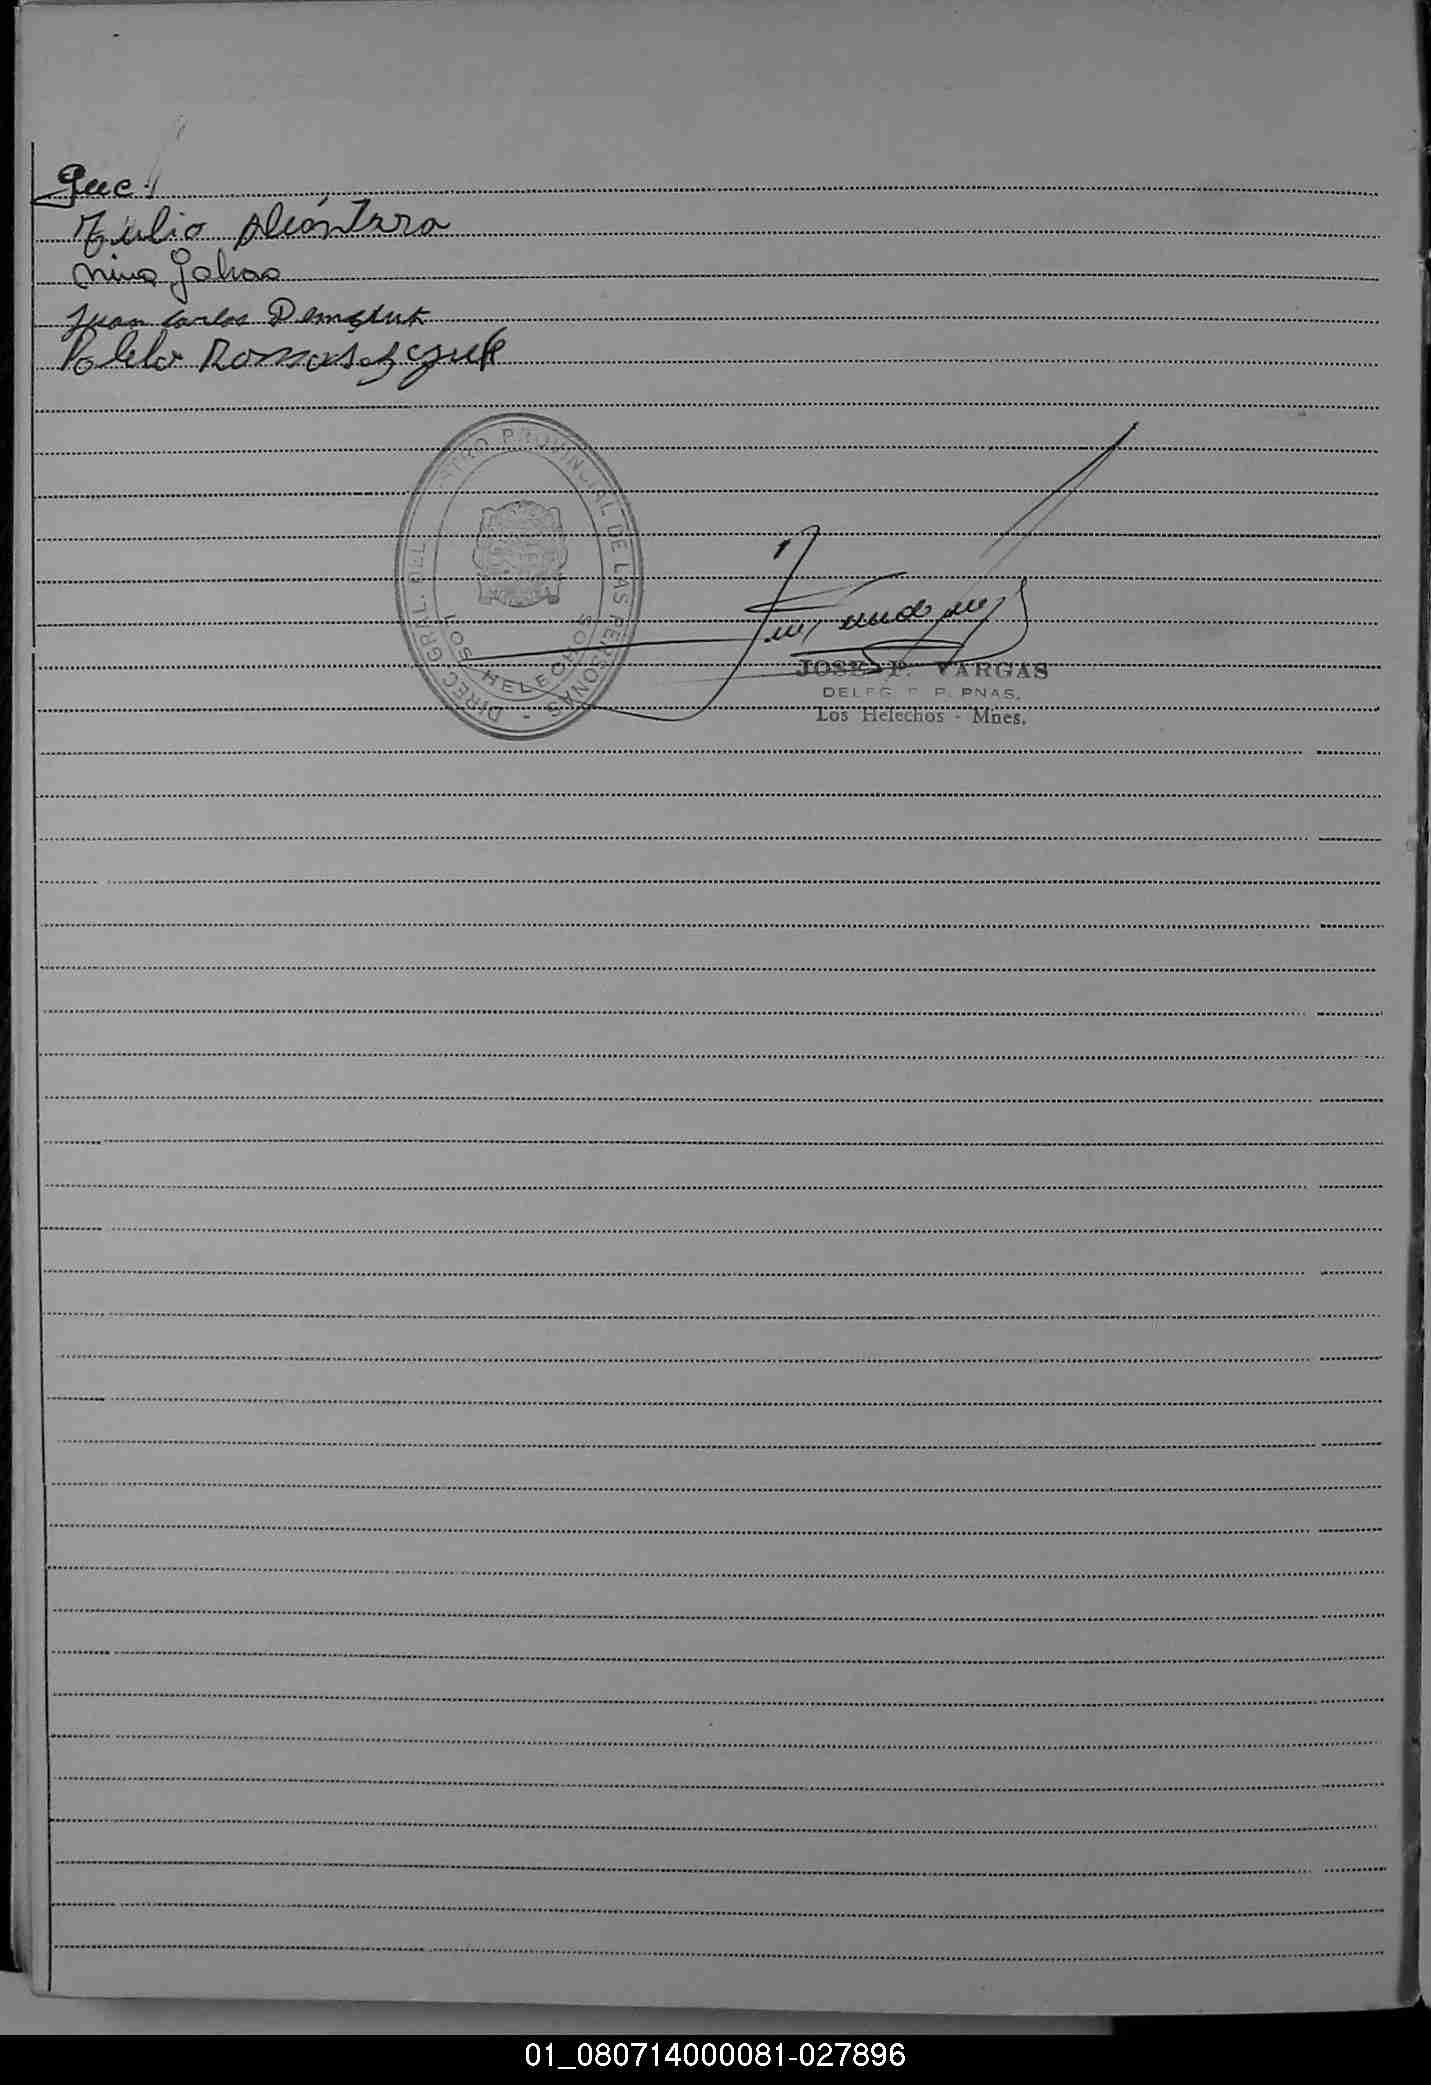 Julio Alcántara
Juan Carlos Demczuk
Pablo Romaszczuk
DIREC. GRAL. DEL REGISTRO PROVINCIAL DE LAS PERSONAS -
LOS HELECHOS
JOSE P. VARGAS
DELEG. R. P. PNAS.
Los Helechos - Mnes.
01_080714000081-027896